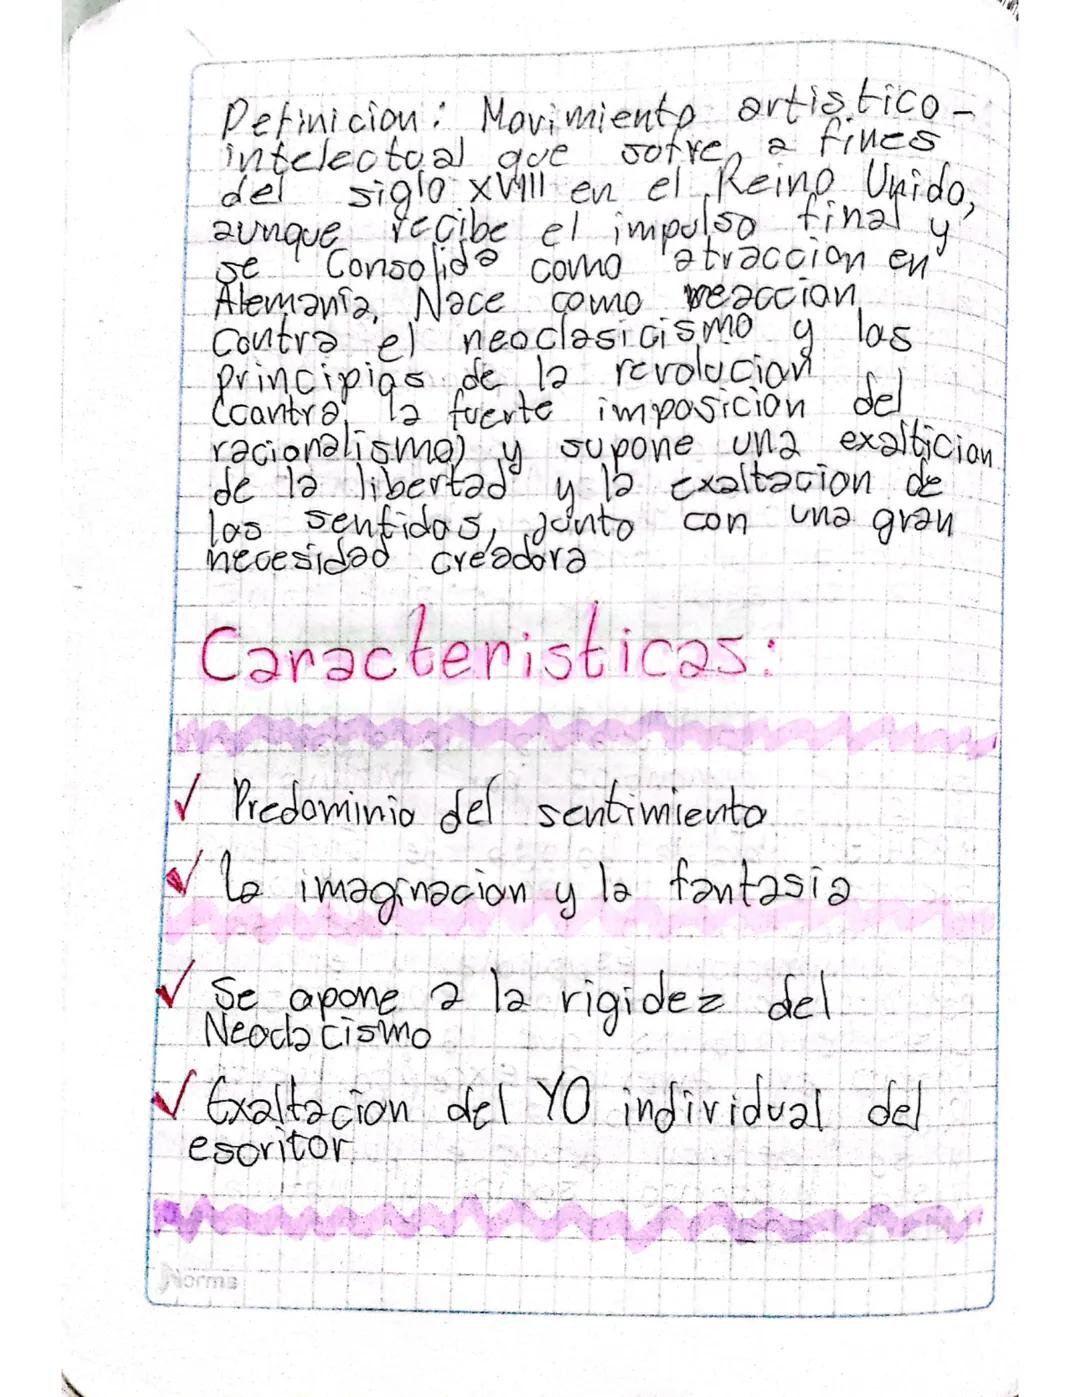 Definicion: Movimiento artistico-
intelectual que sotre, a fines
del siglo XVIII en el Reino Unido,
aunque recibe el impulso final y
se Consolida como atraccion en
Alemanía, Nace como reaccion
Contra el neoclasicismo y las
principios de la revolucion
(contra la fuerte imposicion del
racionalismo) y supone una exalticion
de la libertad y la exaltacion de
los sentidos, junto con una gran
necesidad creadora
Caracteristicas:
✓ Predominio del sentimiento
✓ la imaginacion y la fantasia
✓ Se apone a la rigidez del
Neoclacismo
✓ Exaltacion del YO individual del
escritor.
Norma